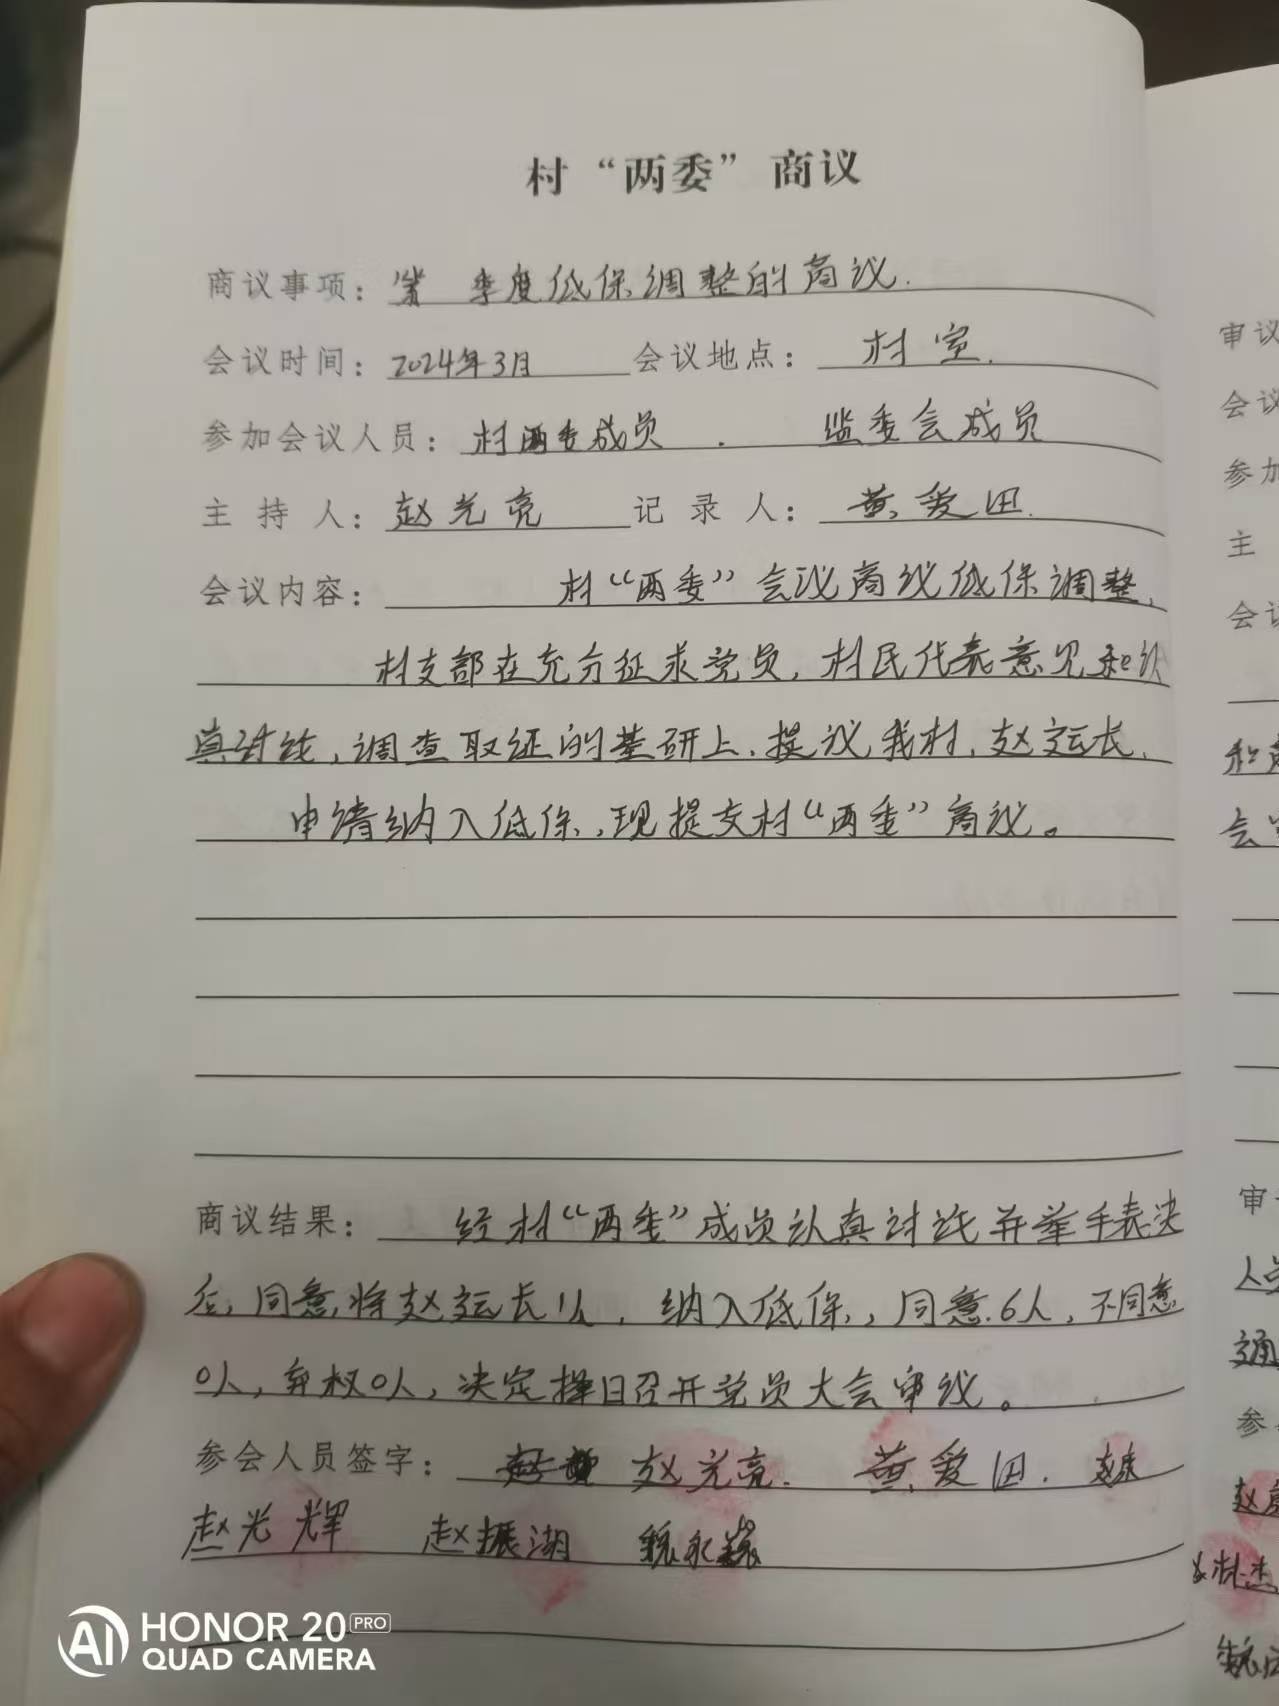 村“两委”商议
商议事项：第 季度低保调整的商议.
会议时间：2024年3月 会议地点：村室.
参加会议人员：村两委成员 . 监委会成员
主持人：赵光亮 记录人：黄爱田.
会议内容： 村“两委”会议商议低保调整,
村支部在充分征求党员,村民代表意见和认
真讨论,调查取证的基础上.提议我村,赵运长.
申请纳入低保,现提交村“两委”商议。
商议结果： 经村“两委”成员认真讨论并举手表决
后,同意将赵运长1人, 纳入低保,同意.6人,不同意
0人,弃权0人,决定择日召开党员大会审议。
参会人员签字： 赵光亮. 黄爱田.
赵光辉 赵振湖
审议
会议
参加
主
会议
和
会
审
人员
通
参
赵
HONOR 20 PRO
AI QUAD CAMERA